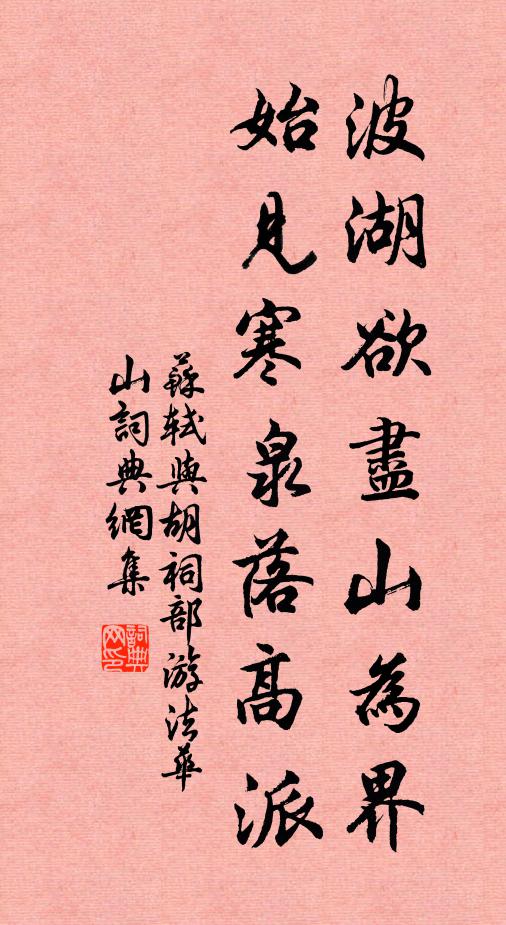 波湖欲盡山為界
始見寒泉落高派
蘇軾與胡祠部游法華
山詞典網集
詞典網印